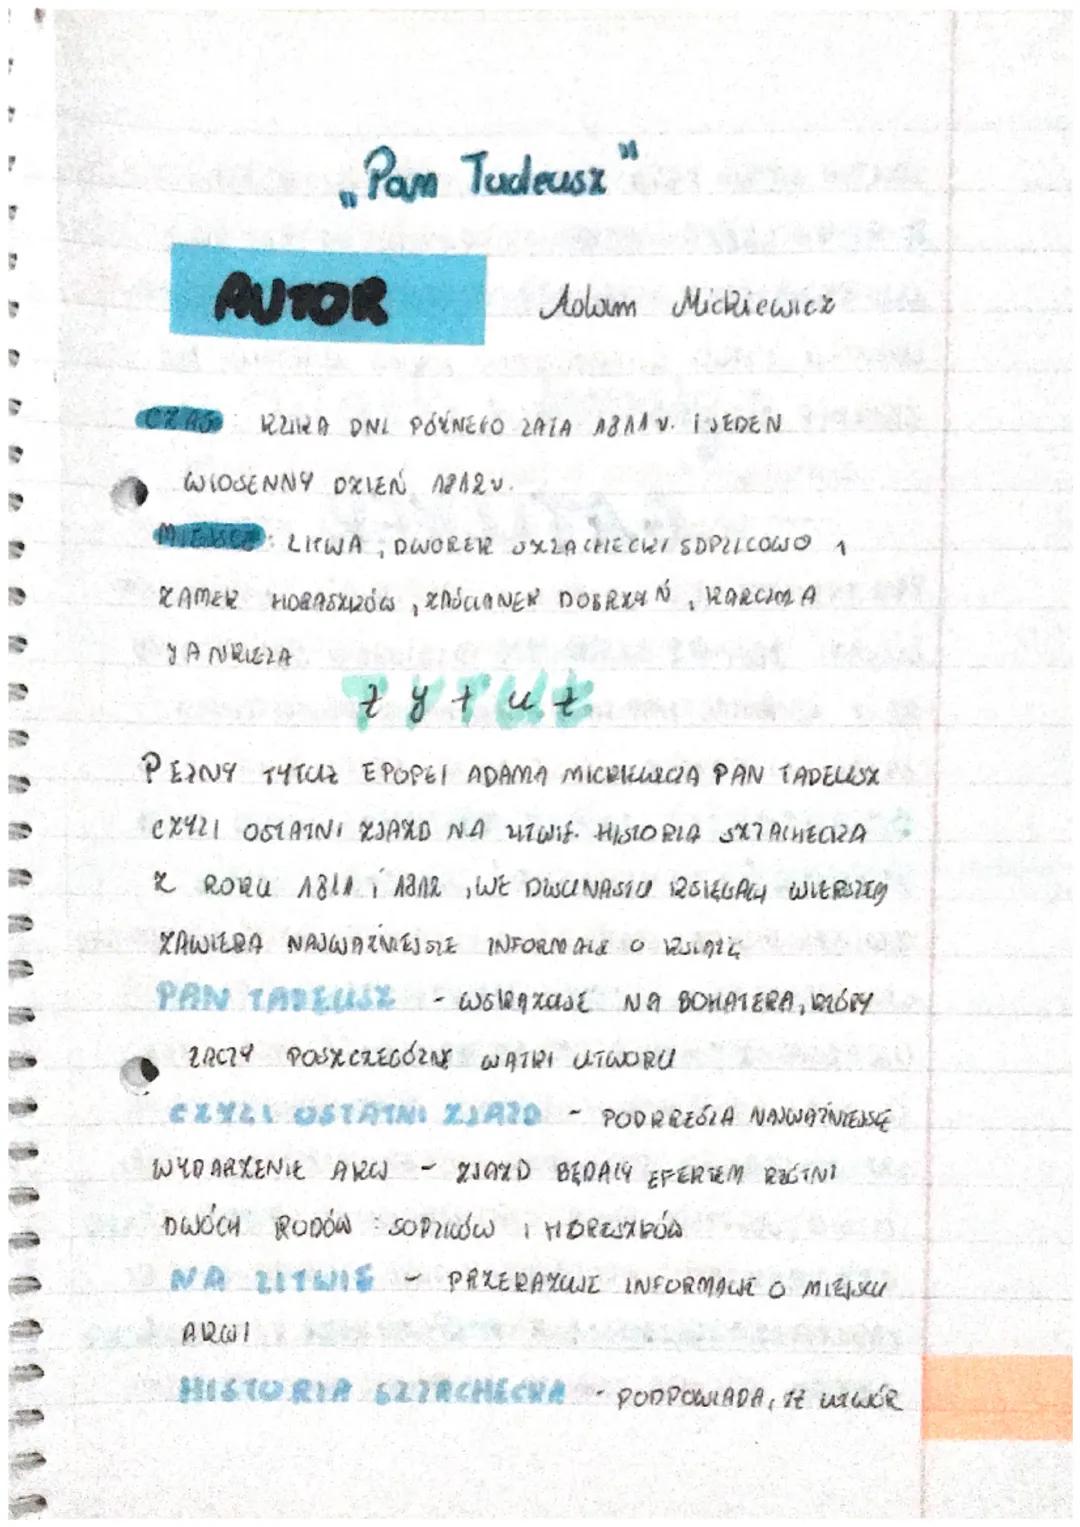 „Pan Tadeusz"
AUTOR Adam Mickiewicz
CZAS: KILKA DNI PÓŹNEGO LATA 1811 r. i JEDEN
WIOSENNY DZIEŃ 1812 r.
MIEJSCE: LITWA, DWOREK SZLACHECKI SOPLICOWO,
ZAMEK HORESZKÓW, ZAŚCIANEK DOBRZYŃ, KARCZMA
JANKIELA
Tytuł
PEŁNY TYTUŁ EPOPEI ADAMA MICKIEWICZA PAN TADEUSZ
CZYLI OSTATNI ZJAZD NA LITWIE. HISTORIA SZLACHECKA
Z ROKU 1811 i 1812, WE DWUNASTU KSIĘGACH WIERSZEM
ZAWIERA NAJWAŻNIEJSZE INFORMACJE O KSIĄŻĘ
PAN TADEUSZ - WSKAZUJE NA BOHATERA, KTÓRY
ŁĄCZY POSZCZEGÓLNE WĄTKI UTWORU
CZYLI OSTATNI ZJAZD - PODKREŚLA NAJWAŻNIEJSZE
WYDARZENIE AKCJI - ZJAZD BĘDĄCY EFEKTEM KŁÓTNI
DWÓCH RODÓW: SOPLICÓW I HORESZKÓW
NA LITWIE - PRZEKAZUJE INFORMACJE O MIEJSCU
AKCJI
HISTORIA SZLACHECKA - PODPOWIADA, IŻ UTWÓR